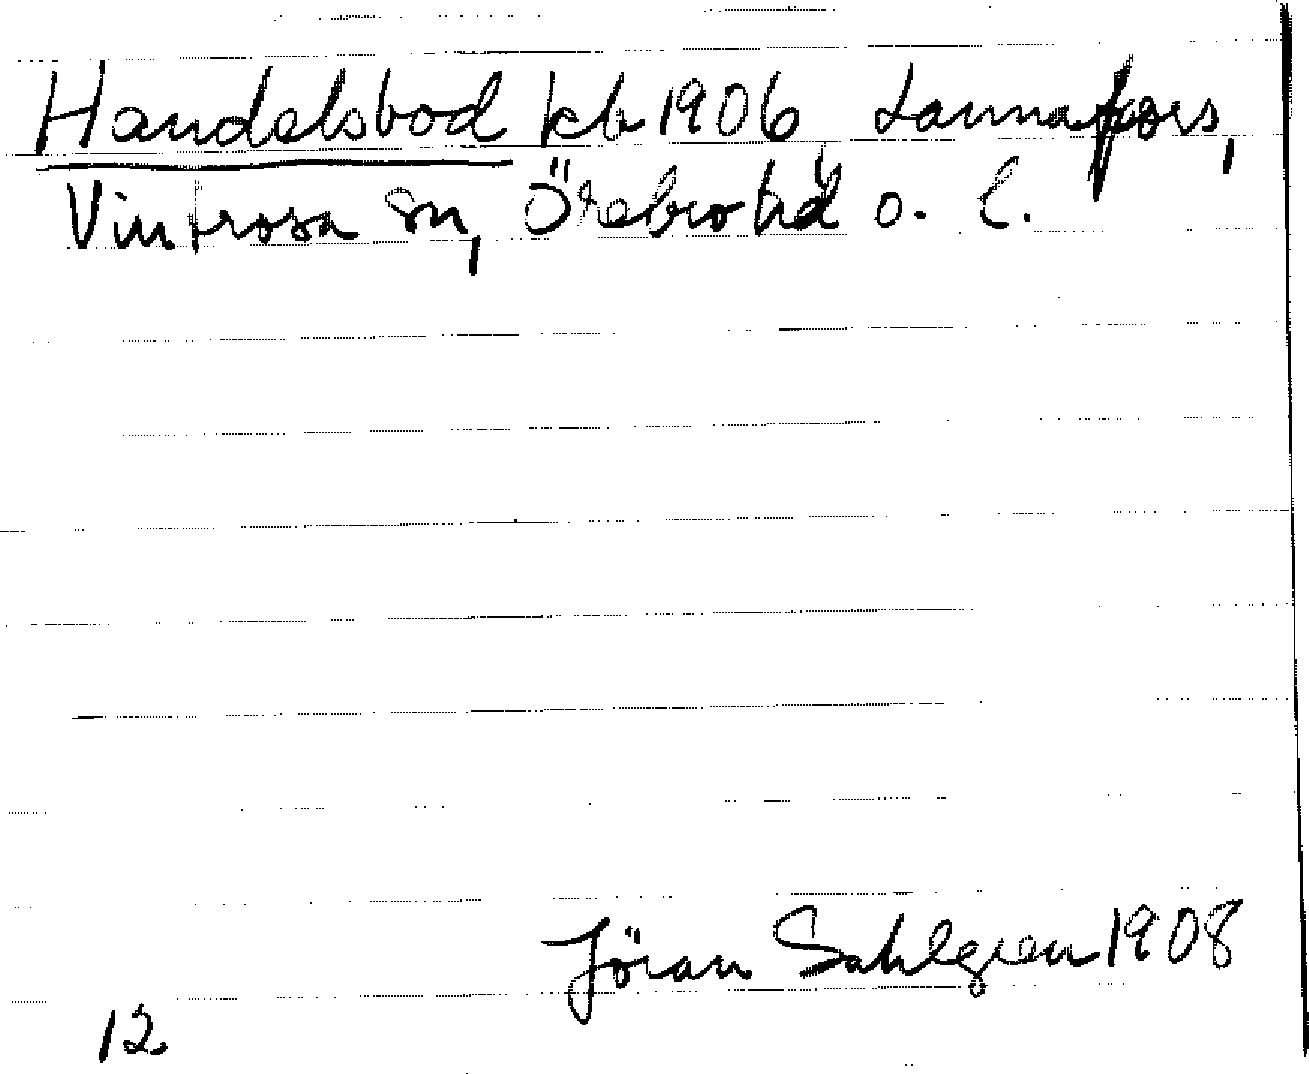 Handelsbod kb 1906 Lannafors,
Vintrosa sn, Örebro hd o. l.
Jöran Sahlgren 1908
12